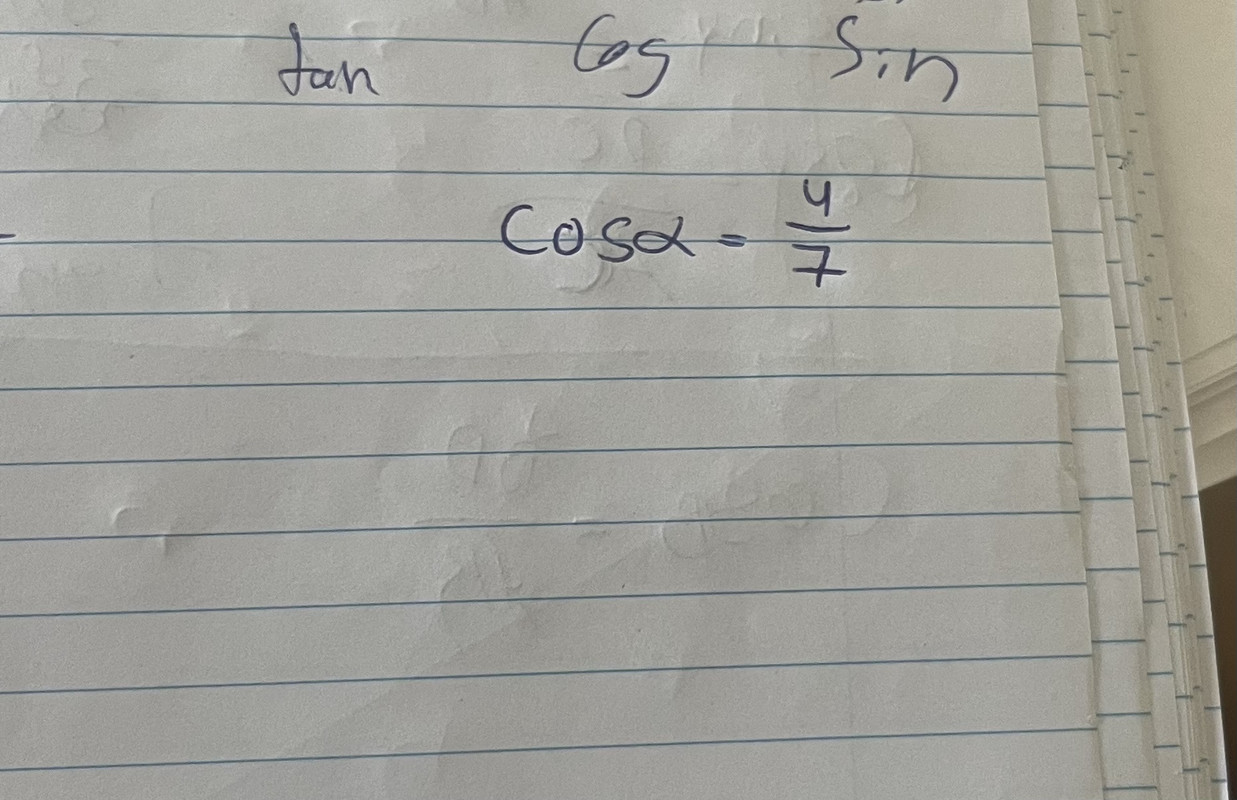 tan cos sin
cosα = 4/7